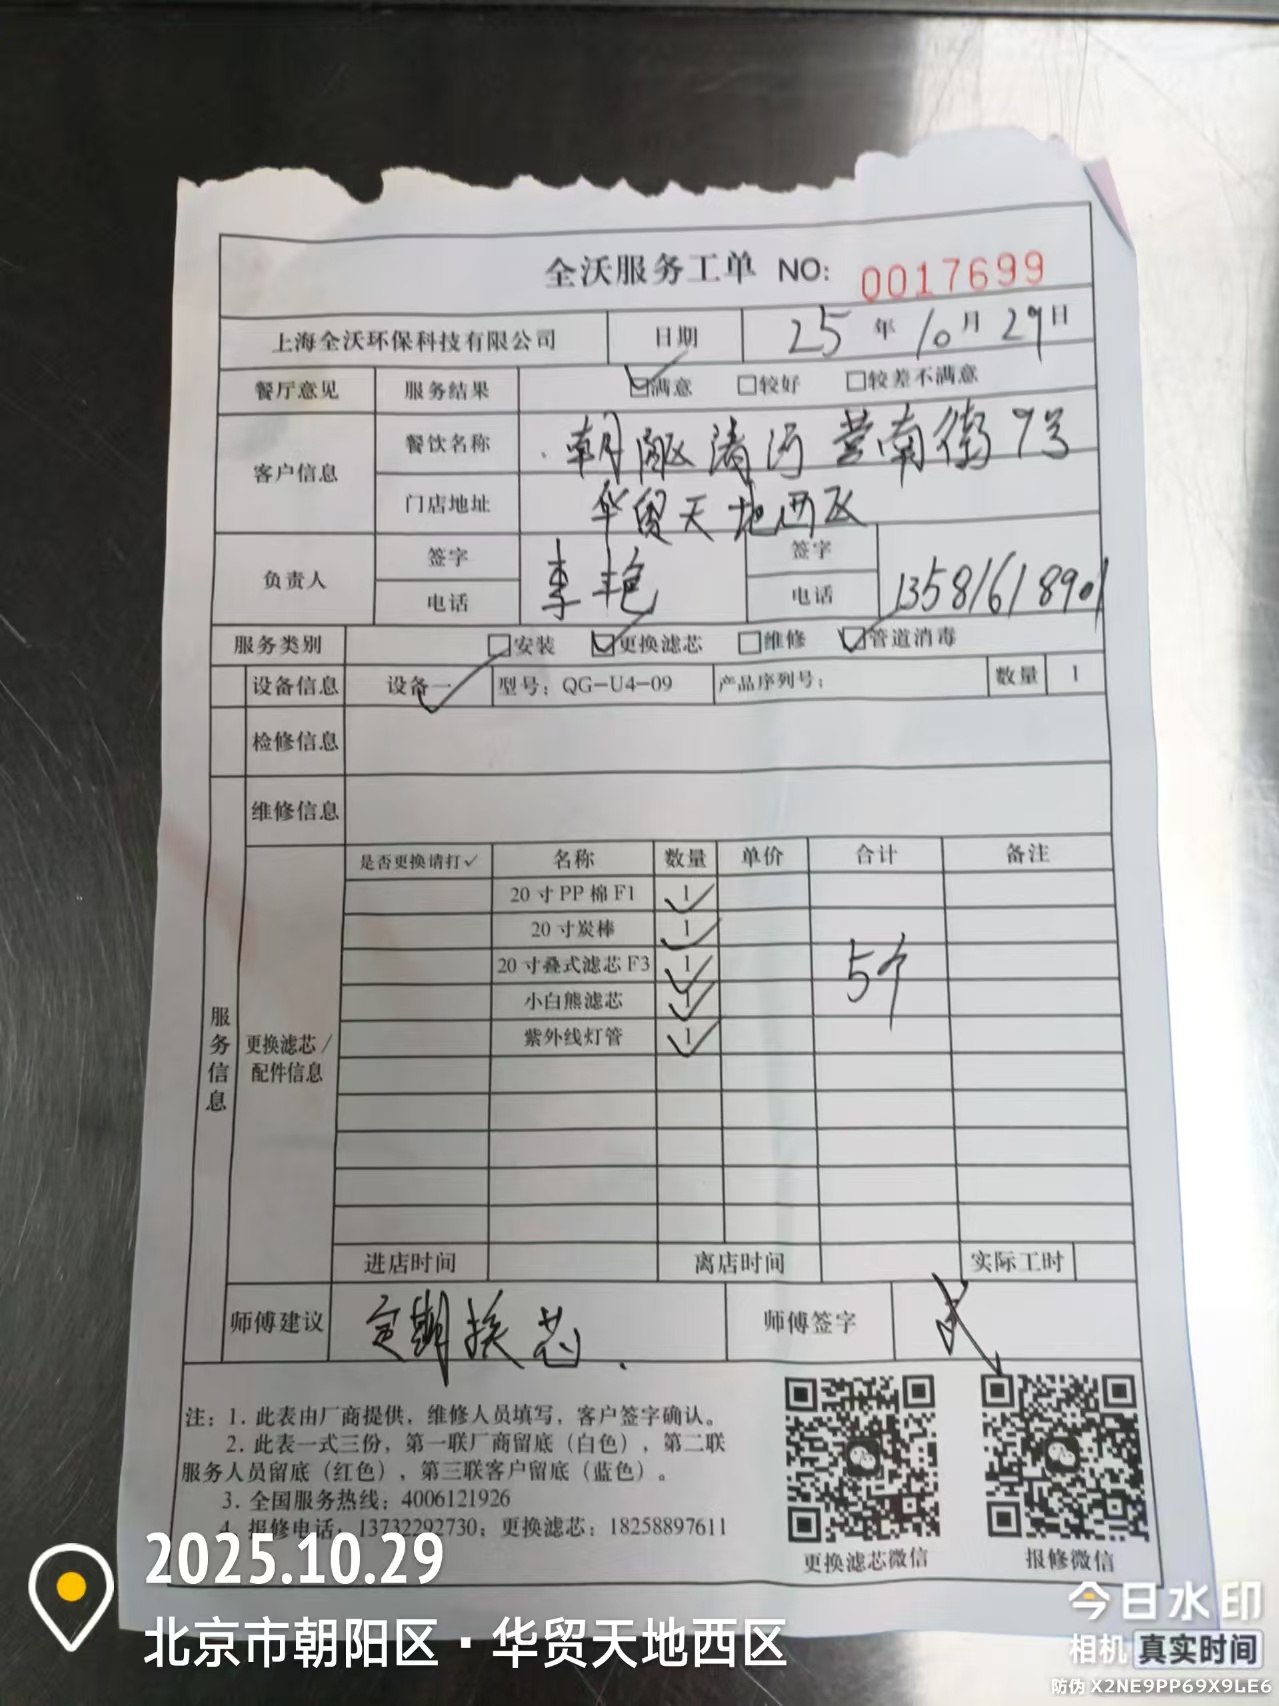 全沃服务工单 NO: 0017699
上海全沃环保科技有限公司 日期 25年10月29日
餐厅意见 服务结果 ☑满意 □较好 □较差不满意
客户信息 餐饮名称 朝阳区清河营南街7号
门店地址 华贸天地西区
负责人 签字 李艳 签字
电话 电话 13581618901
服务类别 □安装 ☑更换滤芯 □维修 ☑管道消毒
设备信息 设备一 ✓ 型号：QG-U4-09 产品序列号： 数量 1
检修信息
维修信息
是否更换请打✓ 名称 数量 单价 合计 备注
20寸PP棉F1 1 ✓
20寸炭棒 1 ✓
20寸叠式滤芯F3 1 ✓ 5个
小白熊滤芯 1 ✓
紫外线灯管 1 ✓
服务信息
更换滤芯/
配件信息
进店时间 离店时间 实际工时
师傅建议 定期换芯. 师傅签字
注：1. 此表由厂商提供，维修人员填写，客户签字确认。
2. 此表一式三份，第一联厂商留底（白色），第二联
服务人员留底（红色），第三联客户留底（蓝色）。
3. 全国服务热线：4006121926
4. 报修电话：13732292730；更换滤芯：18258897611
更换滤芯微信 报修微信
2025.10.29
北京市朝阳区·华贸天地西区
今日水印
相机 真实时间
防伪 X2NE9PP69X9LE6